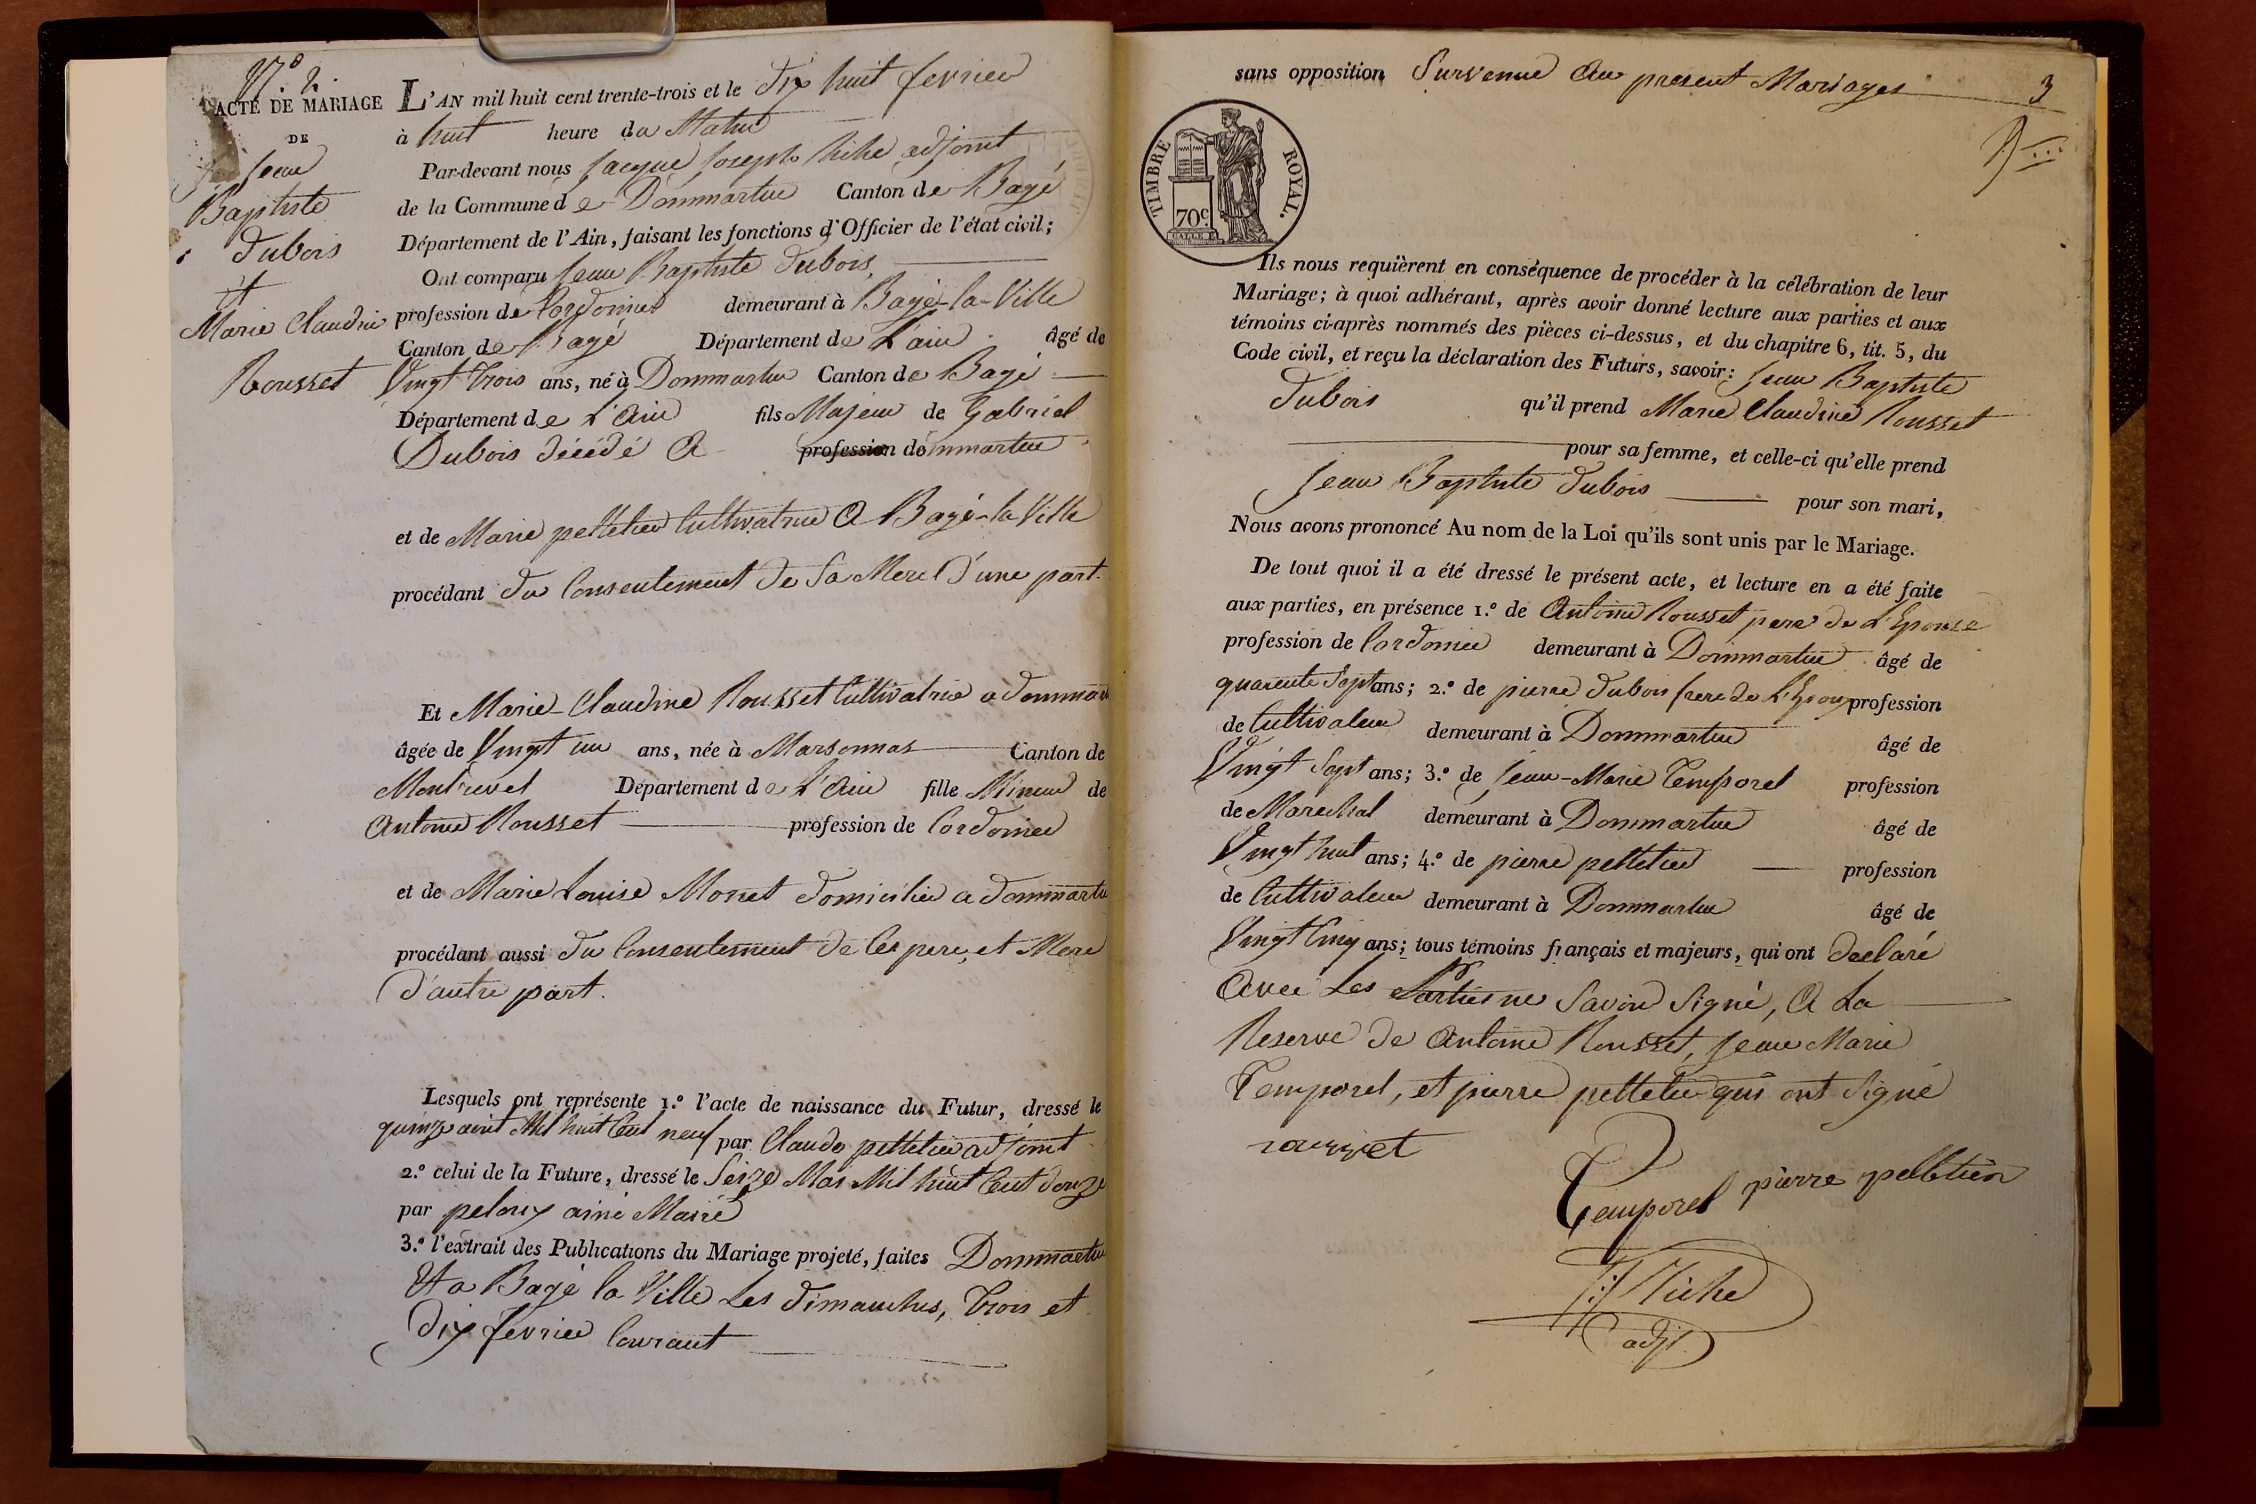 N.º 2.
ACTE DE MARIAGE
DE
Jean
Baptiste
dubois
et
Marie Claudine
Rousset
L'AN mil huit cent trente-trois et le dix huit fevrier
à huit heure du Matin
Par-devant nous Jacque Joseph adjoint
de la Commune de Dommartin Canton de Bagé
Département de l'Ain, faisant les fonctions d'Officier de l'état civil;
Ont comparu Jean Baptiste dubois,
profession de Cordonier demeurant à Bagé-la-Ville
Canton de Bagé Département de L'ain âgé de
Vingt trois ans, né à Dommartin Canton de Bagé
Département de L'Ain fils Majeur de Gabriel
Dubois décédé a profession dommartin
et de Marie pelletier Cultivatrice a Bagé-la-Ville
procédant du Consentement de Sa Mere D'une part.
Et Marie-Claudine Rousset Cultivatrice a dommar
âgée de Vingt un ans, née à Marsonnas Canton de
Montrevel Département de L'Ain fille Mineur de
Antoine Rousset profession de Cordonier
et de Marie Louise Monet domicilié a dommartin
procédant aussi du Consentement de Ces pere, et Mere
D'autre part.
Lesquels ont représenté 1.º l'acte de naissance du Futur, dressé le
quinze aout Mil huit Cent neuf par Claude pelletier adjoint
2.º celui de la Future, dressé le Seize Mai Mil huit Cent douze
par peloux ainé Maire
3.º l'extrait des Publications du Mariage projeté, faites Dommartin
Et a Bagé la Ville Les dimanches, trois et
dix fevrier Courant
sans opposition Survenue Au present Mariages
3
TIMBRE ROYAL.
70c.
Ils nous requièrent en conséquence de procéder à la célébration de leur
Mariage; à quoi adhérant, après avoir donné lecture aux parties et aux
témoins ci-après nommés des pièces ci-dessus, et du chapitre 6, tit. 5, du
Code civil, et reçu la déclaration des Futurs, savoir: Jean Baptiste
dubois qu'il prend Marie Claudine Rousset
pour sa femme, et celle-ci qu'elle prend
Jean Baptiste dubois pour son mari,
Nous avons prononcé Au nom de la Loi qu'ils sont unis par le Mariage.
De tout quoi il a été dressé le présent acte, et lecture en a été faite
aux parties, en présence 1.º de Antoine Rousset pere de L'Epouse
profession de Cordonier demeurant à Dommartin âgé de
quarente Sept ans; 2.º de pierre dubois frere de L'Epoux profession
de Cultivateur demeurant à Dommartin âgé de
Vingt Sept ans; 3.º de Jean-Marie Temporel profession
de Marechal demeurant à Dommartin âgé de
Vingt huit ans; 4.º de pierre pelletier profession
de Cultivateur demeurant à Dommartin âgé de
Vingt Cinq ans; tous témoins français et majeurs, qui ont declaré
Avec Les Parties ne Savoir Signé, A La
Reserve de Antoine Rousset, Jean Marie
Temporel, et pierre pelletier qui ont Signé
Temporel pierre pelletier
adj.